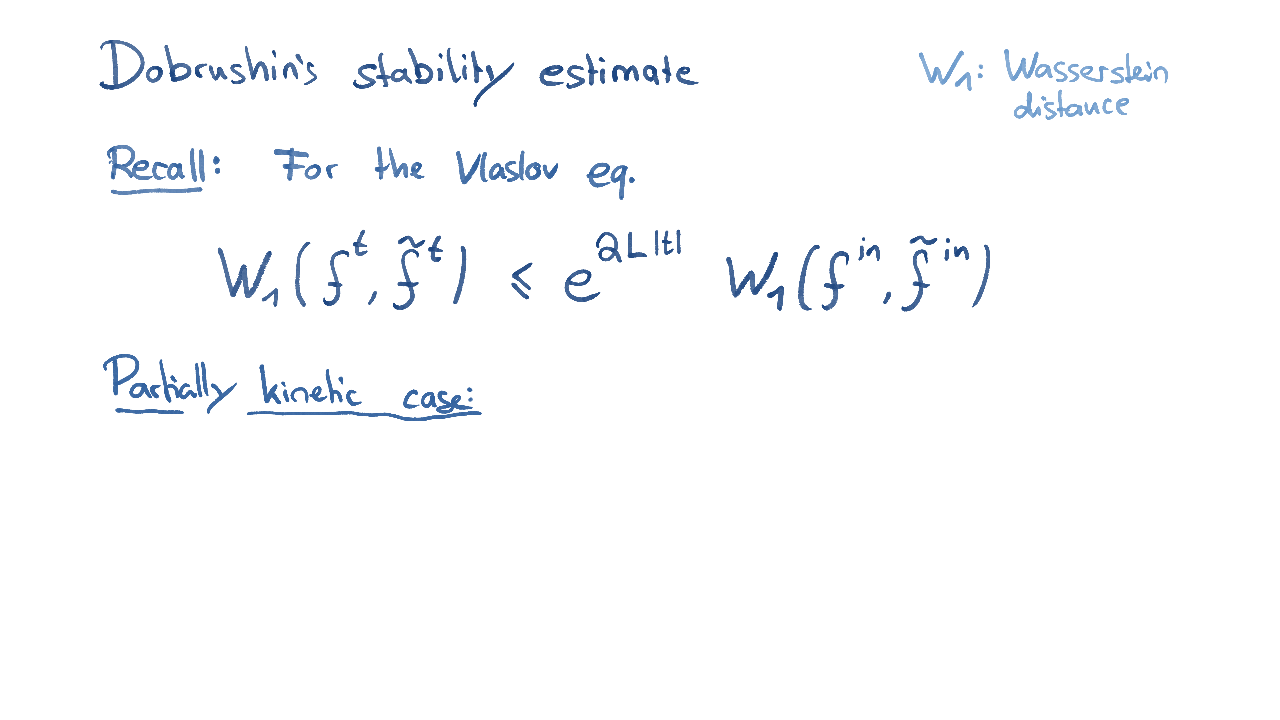 Dobrushin's stability estimate
W₁: Wasserstein
distance
Recall: For the Vlaslov eq.
W₁(fᵗ, f̃ᵗ) ⩽ e^{2L|t|} W₁(f^{in}, f̃^{in})
Partially kinetic case: